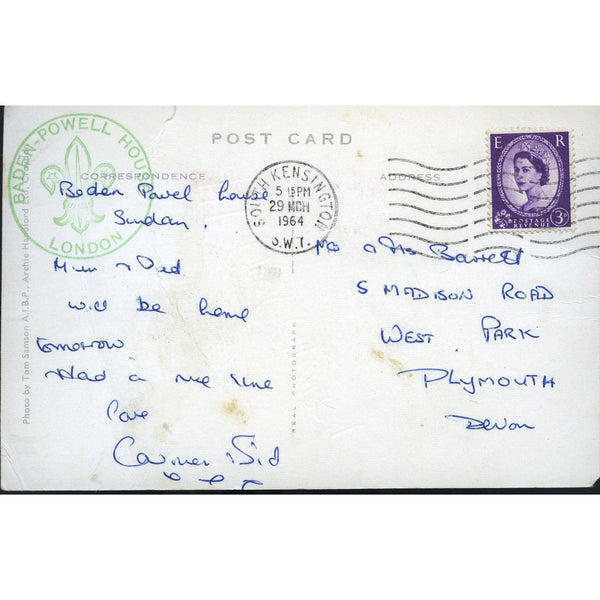 BADEN-POWELL HOUSE
LONDON
POST CARD
CORRESPONDENCE
ADDRESS
SOUTH KENSINGTON
5 15 PM
29 MCH
1964
S.W.7.
E R
POSTAGE
REVENUE
3D
Baden Powel house
Sunday.
Mum & Dad
will be home
tomorrow
Had a nice time
Love
Sid
Mr & Mrs Barrett
5 MADISON ROAD
WEST PARK
PLYMOUTH
DEVON
REAL PHOTOGRAPH
Photo by Tom Samson A.I.B.P., Archie Handford Ltd.